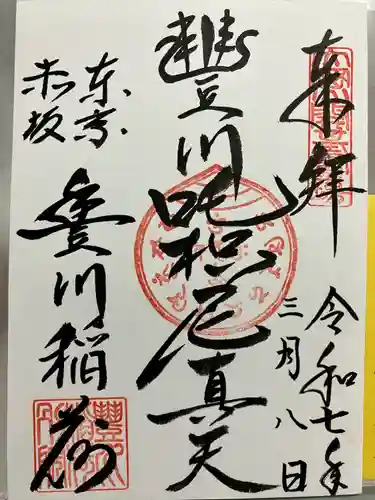 奉拝
令和七年
三月八日
豐川吒枳尼真天
東京
赤坂
豊川稲荷